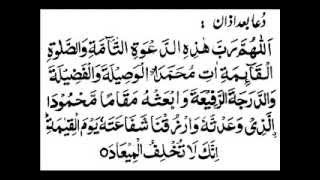 دُعا بعد اذان :
اَللّٰهُمَّ رَبَّ هٰذِهِ الدَّعْوَةِ التَّآمَّةِ وَالصَّلٰوةِ
الْقَآئِمَةِ اٰتِ مُحَمَّدَاࣙ الْوَسِيْلَةَ وَالْفَضِيْلَةَ
وَالدَّرَجَةَ الرَّفِيْعَةَ وَابْعَثْهُ مَقَامًا مَّحْمُوْدَاࣙ
الَّذِيْ وَعَدْتَّهٗ وَارْزُقْنَا شَفَاعَتَهٗ يَوْمَ الْقِيٰمَةِ
اِنَّكَ لَا تُخْلِفُ الْمِيْعَادَ ○